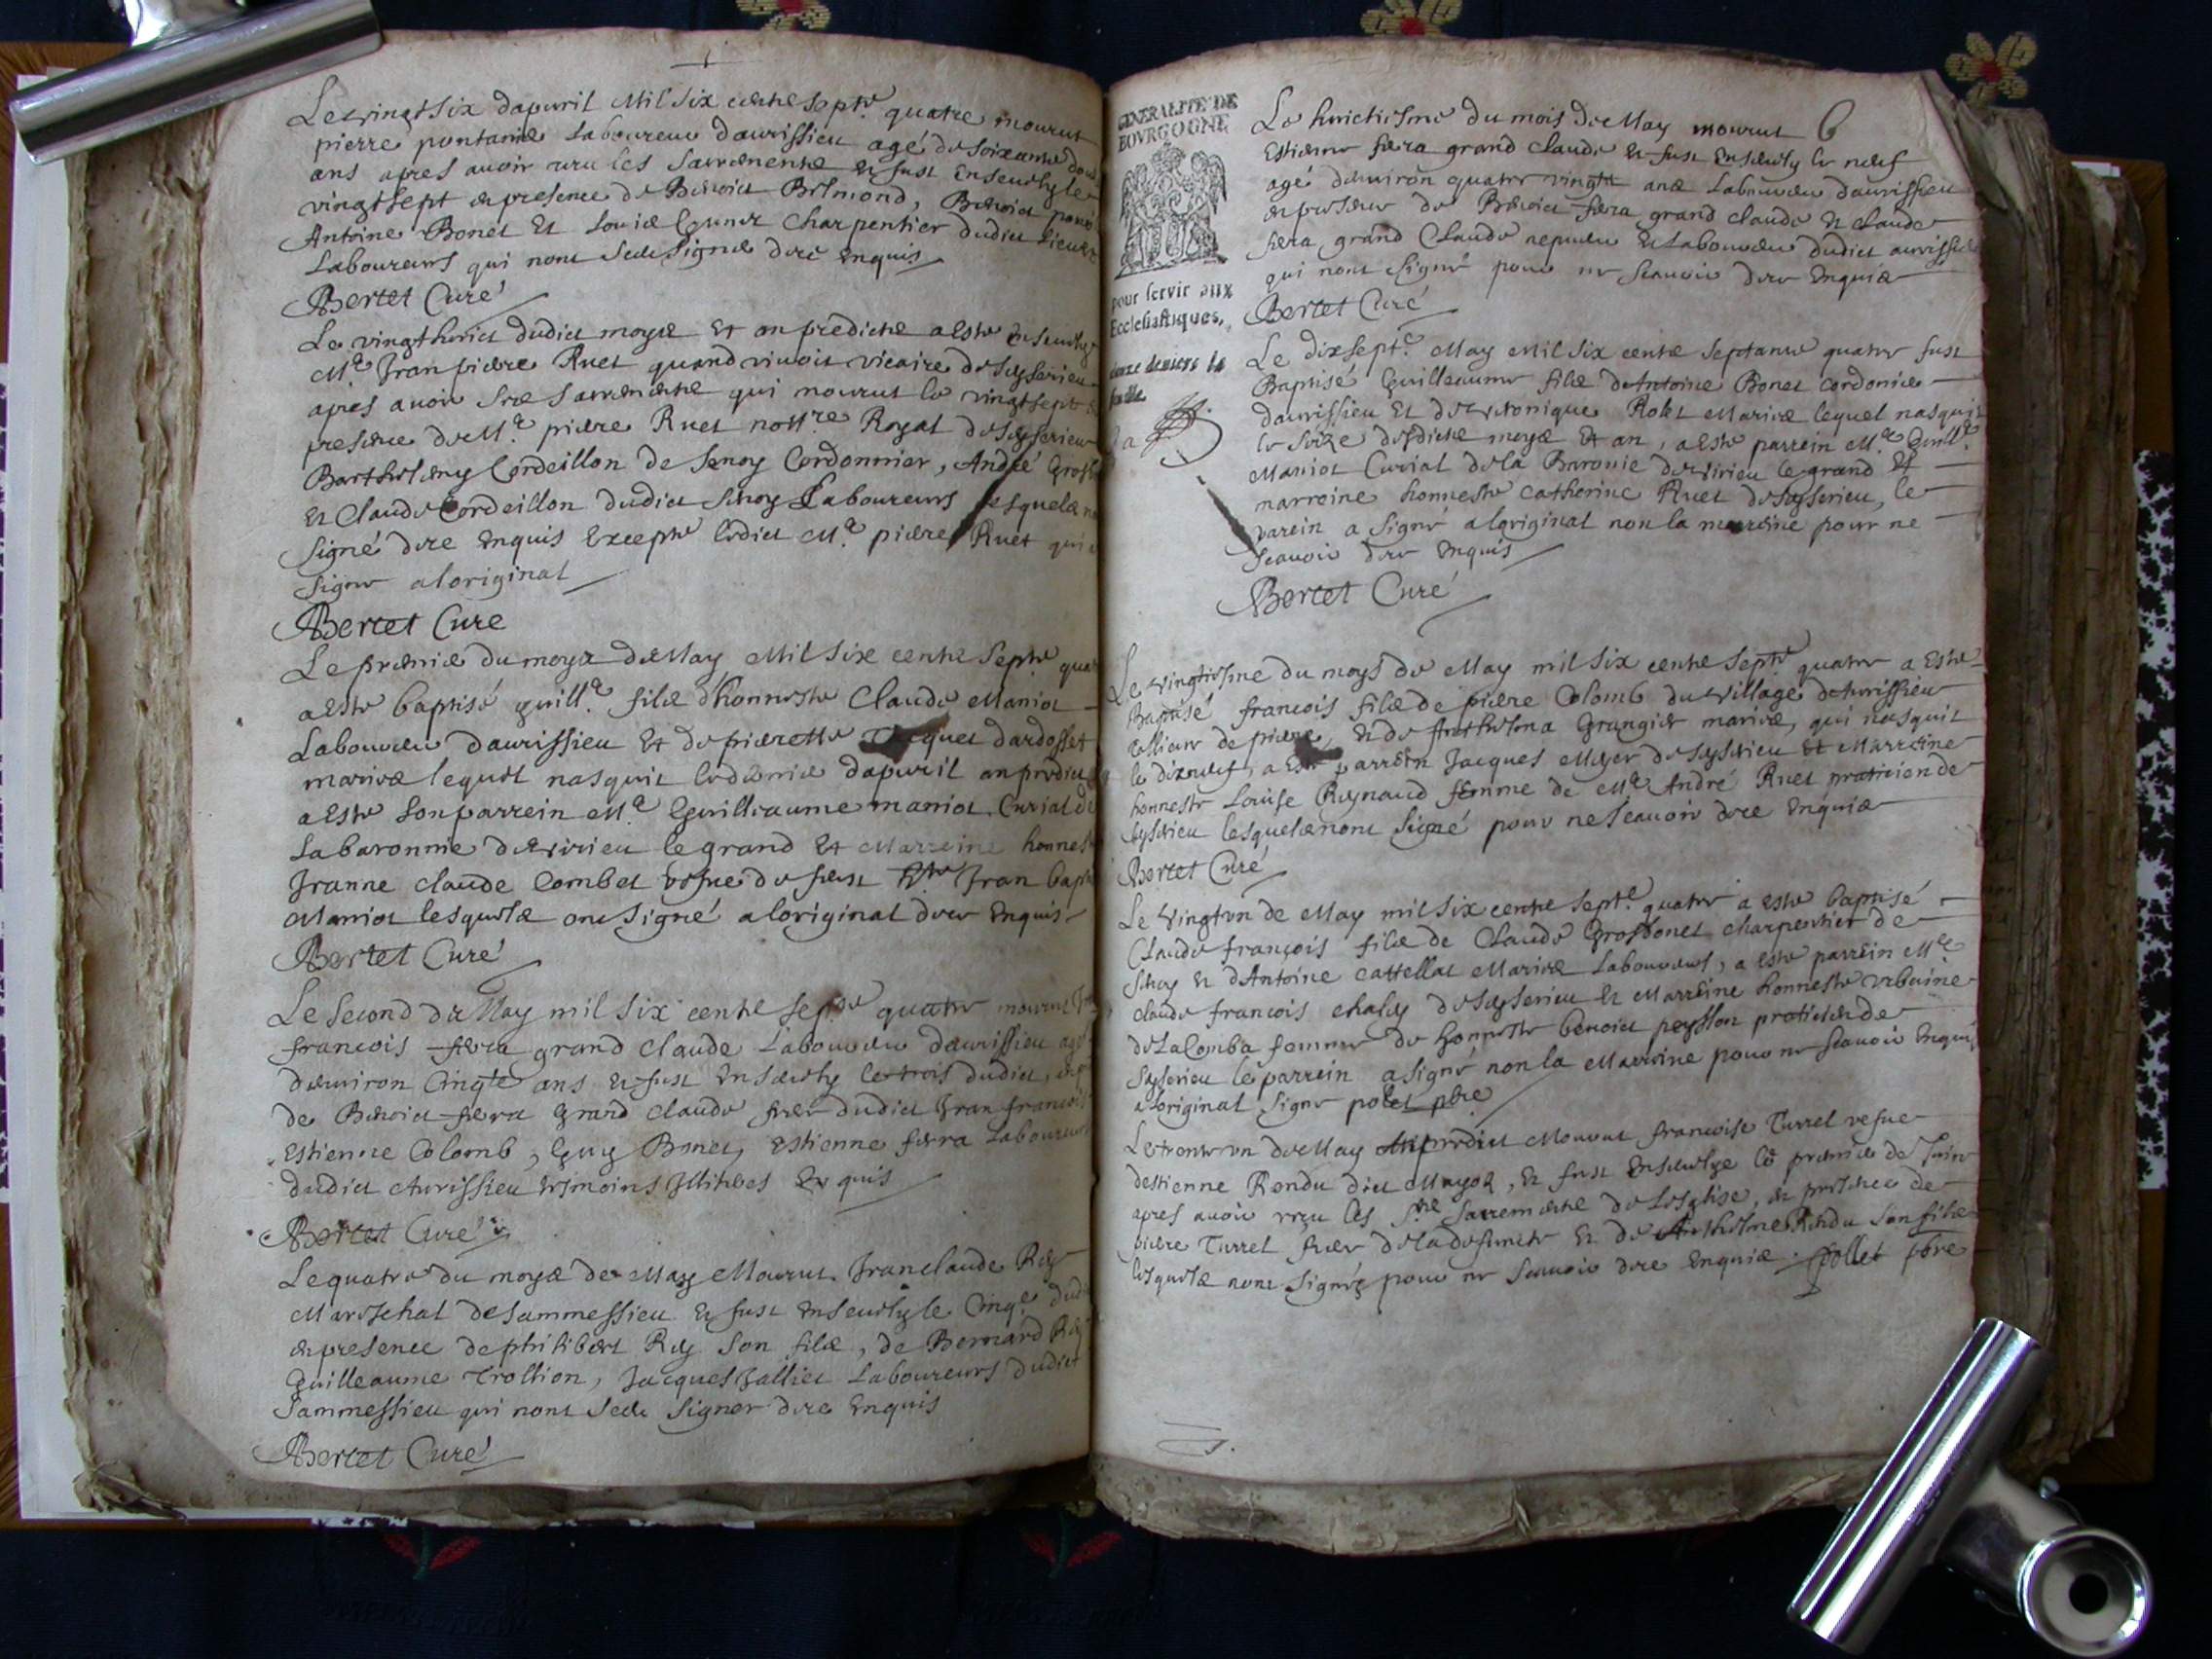 Le vingt six dapvril Mil six cents septte quatre mourut
pierre pontanie Laboureur daurissieu agé de soixante
ans apres avoir receu les sacrements et fust Ensevely le
vingtsept en presence de Benoict Belmond, Benoict
Antoine Bonet Et Louis Charpentier dudict Lieu
Laboureurs qui nont sceu signer de ce enquis
Bertet Curé
Le vingthuict dudict moys Et an predicts a esté Ensevely
Me Jean piere Ruet quand vivoit vicaire de seyserieu
apres avoir sacrements qui mourut le vingtsept
presence de Me piere Ruet nottre Royal de seyserieu
Barthelemy Cordeillon de senoy Cordonnier, André
Et Claude Cordeillon dudict Laboureurs lesquels
signé de ce enquis Excepte ledict Me piere Ruet qui
signe aloriginal
Bertet Cure
Le premier du moys de May Mil six cents septte
a este baptisé guille fils dhonneste Claude Maniot
Laboureur daurissieu Et de pierette dardosset
mariez lequel nasquit le dernier dapvril an predict
a este son parrein Me Guillaume maniot Curial de
La baronnie de virieu le grand Et Marreine
Jeanne claude Combet vefve de feust Jean
Maniot lesquels ont signé aloriginal de ce enquis
Bertet Curé
Le second de May mil six cents septte quatre mourut
francois fera grand Claude Laboureur daurissieu
denviron cinqte ans et fust Ensevely le trois dudict,
de Benoict fera grand claude frere dudict Jean francois
Estienne Colomb, Guy Bonet, Estienne fera Laboureurs
dudict Aurissieu tesmoins Illiterés Enquis
Bertet Curé
Le quatre du moys de May Mourut Jean claude Rey
Mareschal de sammessieu et fust ensevely le Cinqe
en presence de philibert Rey son fils, de Bernard Rey
Guilleaume Trollion, Jacques Jalliet Laboureurs dudict
Sammessieu qui nont sceu signer de ce Enquis
Bertet Curé
GENERALITE DE
BOVRGOGNE
pour servir aux
Ecclesiastiques,
douze deniers la
feuille
Le huictiesme du mois de May mourut 6
Estienne fera grand claude et fust Ensevely le neuf
agé denviron quatre vingts ans Laboureur daurissieu
en presence de Benoict fera grand claude et claude
fera grand Claude nepveu et Laboureur dudict
qui nont signé pour ne scavoir de ce enquis
Bertet Curé
Le dixsepte May Mil six cents septante quatre fust
Baptisé Guilleaume fils de Antoine Bonet cordonier
daurissieu Et de veronique Rolet Mariez lequel nasquit
le seize desdicts moys Et an, a este parrein Me
Maniot Curial de la Baronie de virieu le grand Et
marreine honneste Catherine Ruet de seyserieu, le
parein a signé aloriginal non la marreine pour ne
scavoir de ce enquis
Bertet Curé
Le vingtiesme du moys de May mil six cents septte quatre a este
Baptisé francois fils de piere Colomb du village daurissieu
de piere, et de Anthelma Grangier mariez, qui nasquit
le dixneuf, a este parrein Jacques Meyer de seyserieu Et Marreine
honneste Louise Reynaud femme de Me André Ruet praticien de
seyserieu lesquels nont signé pour ne scavoir de ce enquis
Bertet Curé
Le vingt un de May mil six cents septte quatre a este baptisé
Claude françois fils de Claude Grosbonet charpentier de
et dAntoine Castellat Mariez Laboureurs, a este parrein Me
claude francois chaley de seyserieu et Marreine honneste urbaine
de La Comba femme de honneste benoict peysson praticien de
Seyserieu le parrein a signé non la Marreine pour ne scavoir Enquis
aloriginal signe polet pbre
Le trente un de May An predict Mourut francoise Turrel vefve
destienne Rendu dict, et fust Ensevelye le premier de Juin
apres avoir receu les sacrements de Lesglise, en presence de
piere Turrel frere de la defuncte et de Anthelme Rendu son fils
lesquels nont signés pour ne scavoir de ce enquis. pollet pbre